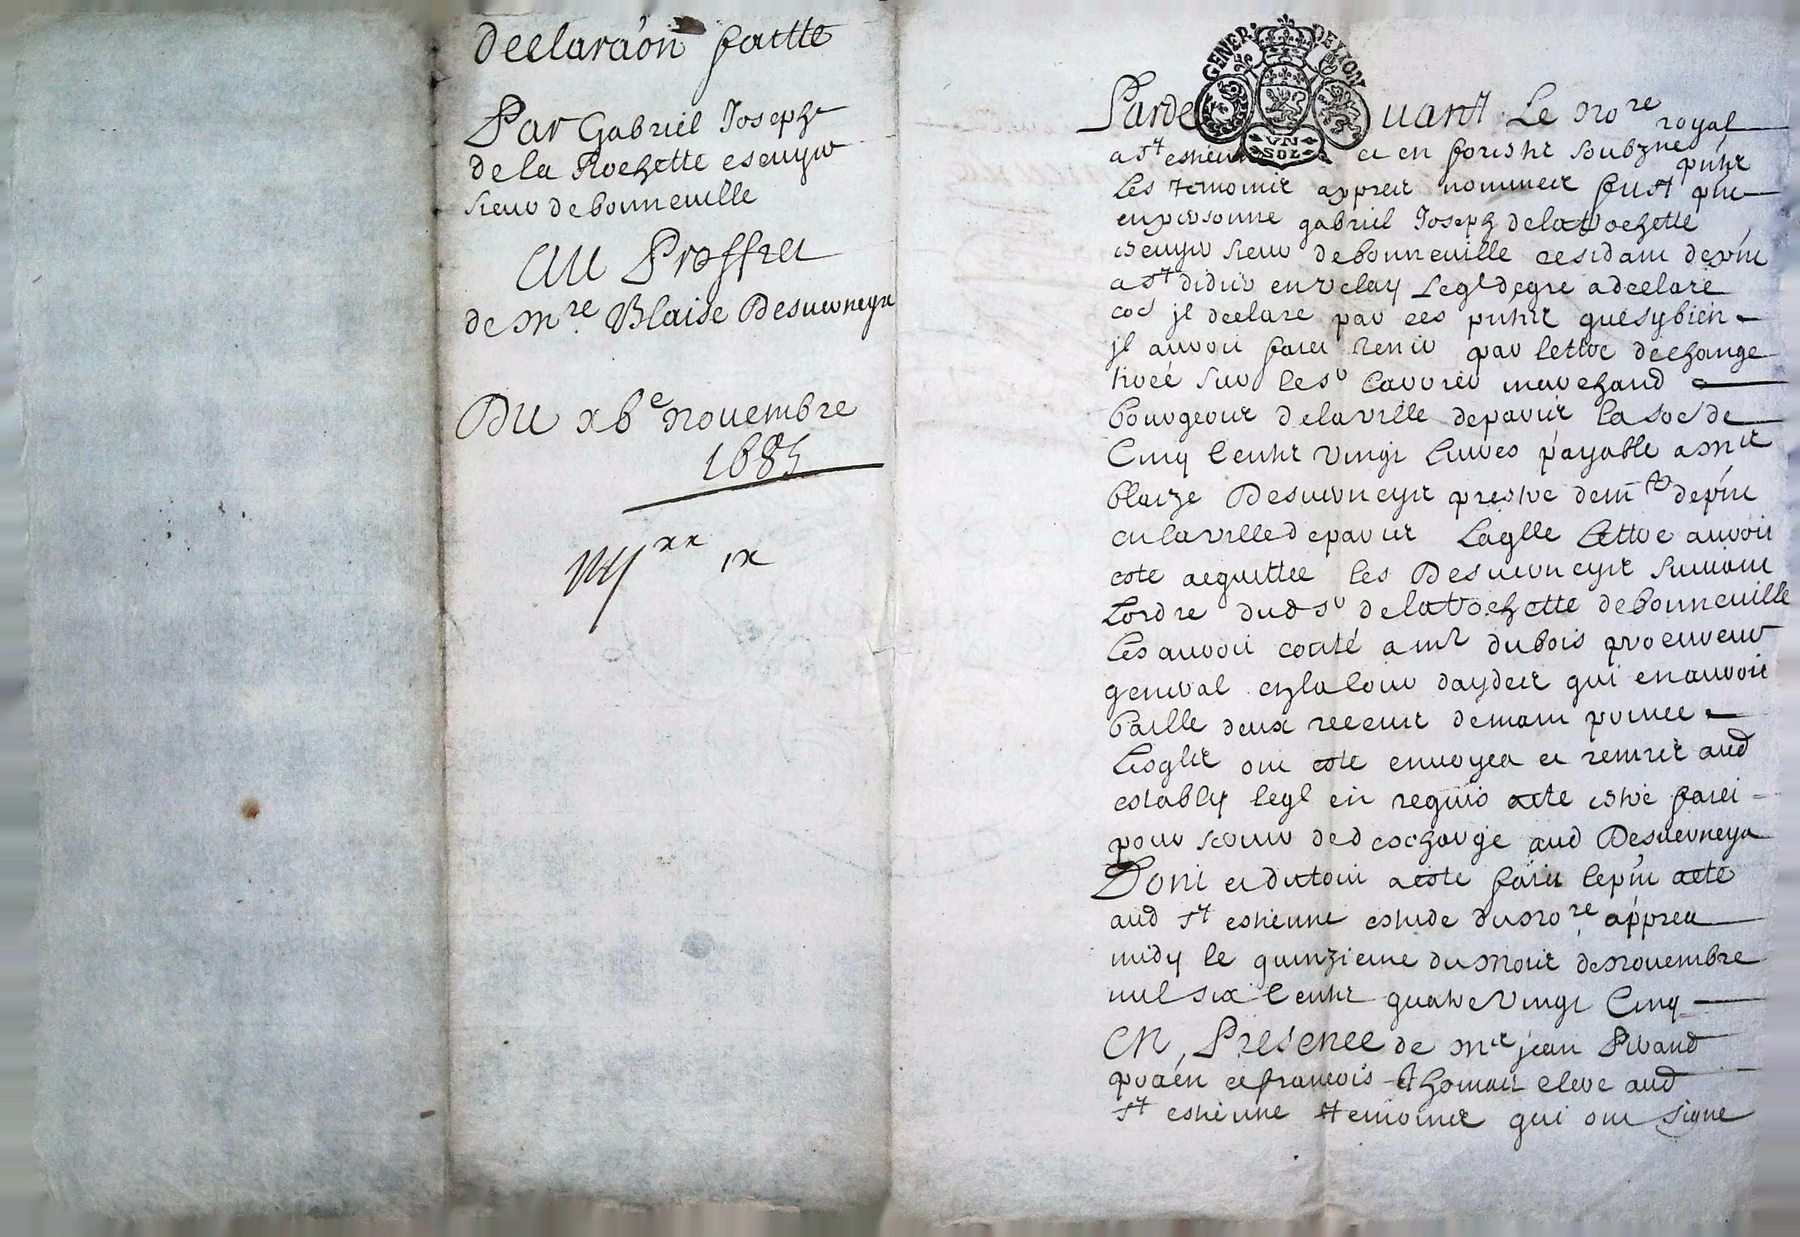 declara'on faitte
Par Gabriel Joseph
de la Rochette escuyer
sieur de bonneuille
Au Proffict
de Mre. Blaise Desuerneys
Du xbe nouembre
1685
xx ix
GENER. DE LYON
VN
SOL
Parde uant Le Nore royal
a st estienne et en forestz soubzne
les temoins appres nommes fust
en personne gabriel Joseph dela rochette
escuyer sieur de bonneuille residant
a st didier en velay Leql degre a declaré
il declare par ces pntes que sy bien
jl auroit faict tenir par lettre dechange
tireé sur le sr marchand
bourgeois dela ville de paris la soe de
Cinq Centz vingt Liures payable a Mre
blaize Desuerneys prestre
en la ville de paris Laqlle Lettre auroit
esté acquittée les Desuerneys suiuant
Lordre dud sr dela rochette de bonneuille
Les auroit conté a mr dubois procureur
general en la cour daydes qui en auroit
baille deux de main priuee
Lesqls ont esté enuoyes et remis aud
estably leql en requis acte estre faict
pour seruir de descharge aud Desuerneys
Dont et du tout a esté faict le pnt acte
aud st estienne estude du Nore. appres
midy le quinzieme du Mois de nouembre
mil six Centz quatre vingt Cinq
En Presence de Mre jean
praen et francois thomas clerc aud
st estienne temoins qui ont signe